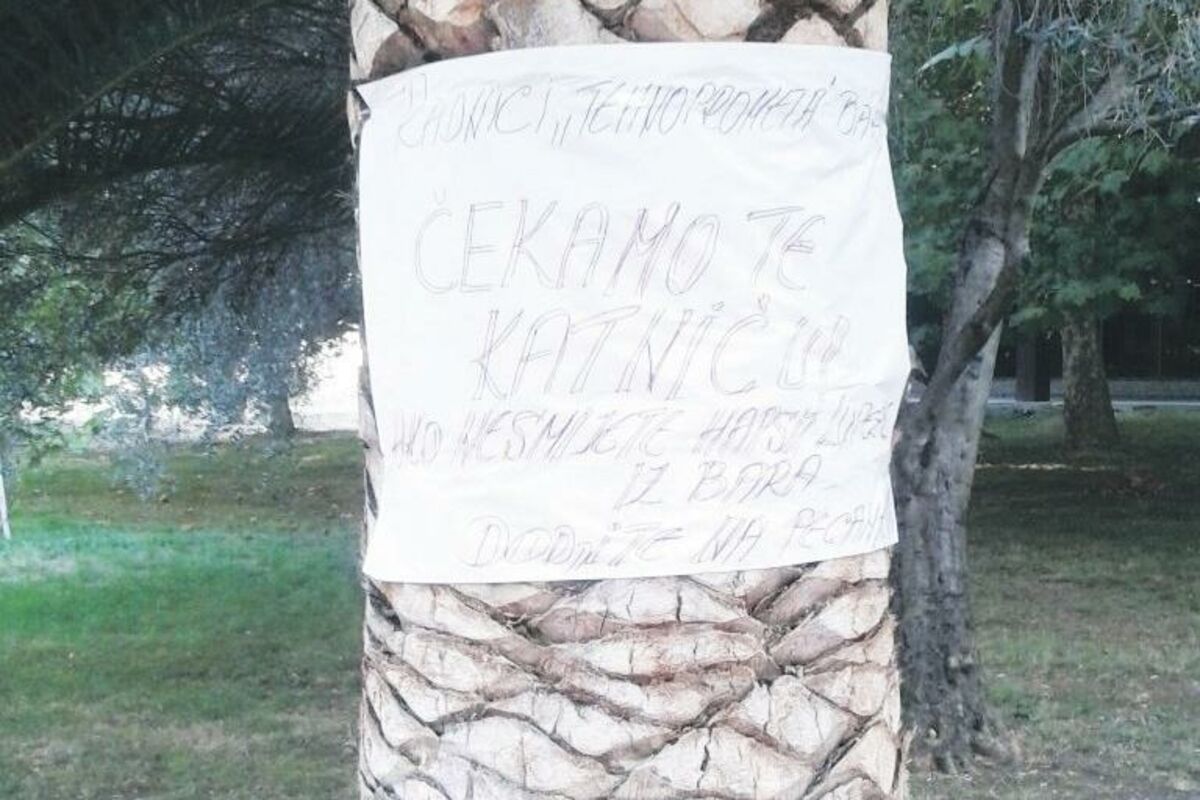 RADNICI „TEHNOPROMETA" BAR
ČEKAMO TE
KATNIČU
AKO NESMIJETE HAPSIT LUPEŽE
IZ BARA
DOĐITE NA